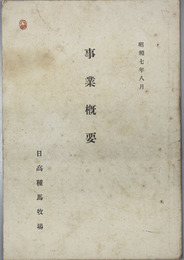 昭和七年八月
事業概要
日高種馬牧場